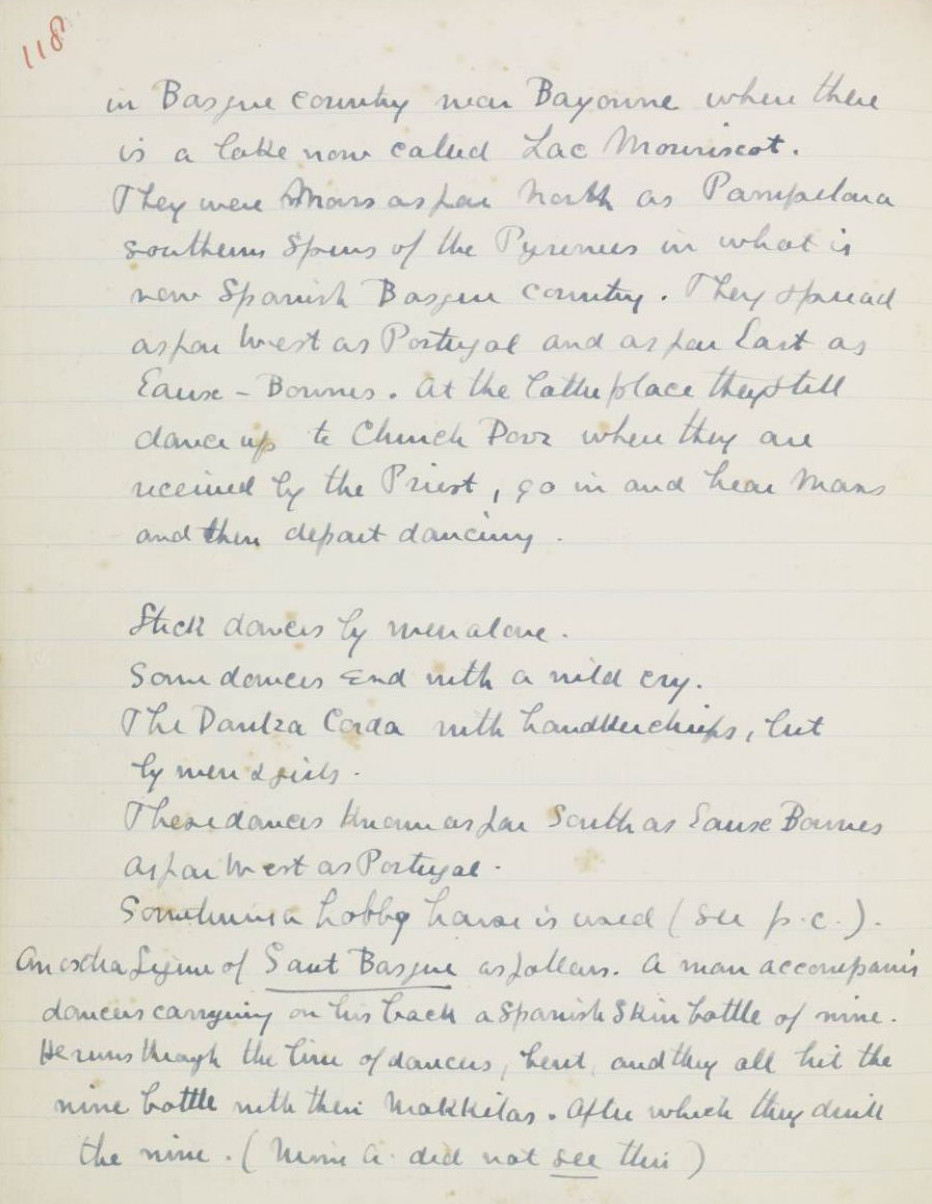 118
in Basque country near Bayonne where there
is a lake now called Lac Mouriscot.
They were Moors as far North as Pampelona
southern Spurs of the Pyrenees in what is
now Spanish Basque country. They spread
as far West as Portugal and as far East as
Eaux-Bonnes. At the latter place they still
dance up to Church Door where they are
received by the Priest, go in and hear Mass
and then depart dancing.
Stick dances by men alone.
Some dances End with a wild cry.
The Dantza Corda with handkerchiefs, but
by men & girls.
These dances known as far South as Eause Bonnes
as far West as Portugal.
Sometimes a hobby horse is used (see p.c.).
An extra figure of Saut Basque as follows. A man accompanies
dancers carrying on his back a Spanish Skin bottle of wine.
He runs through the line of dancers, bent, and they all hit the
wine bottle with their Makkilas. After which they drink
the wine. (Mme A. did not see this)